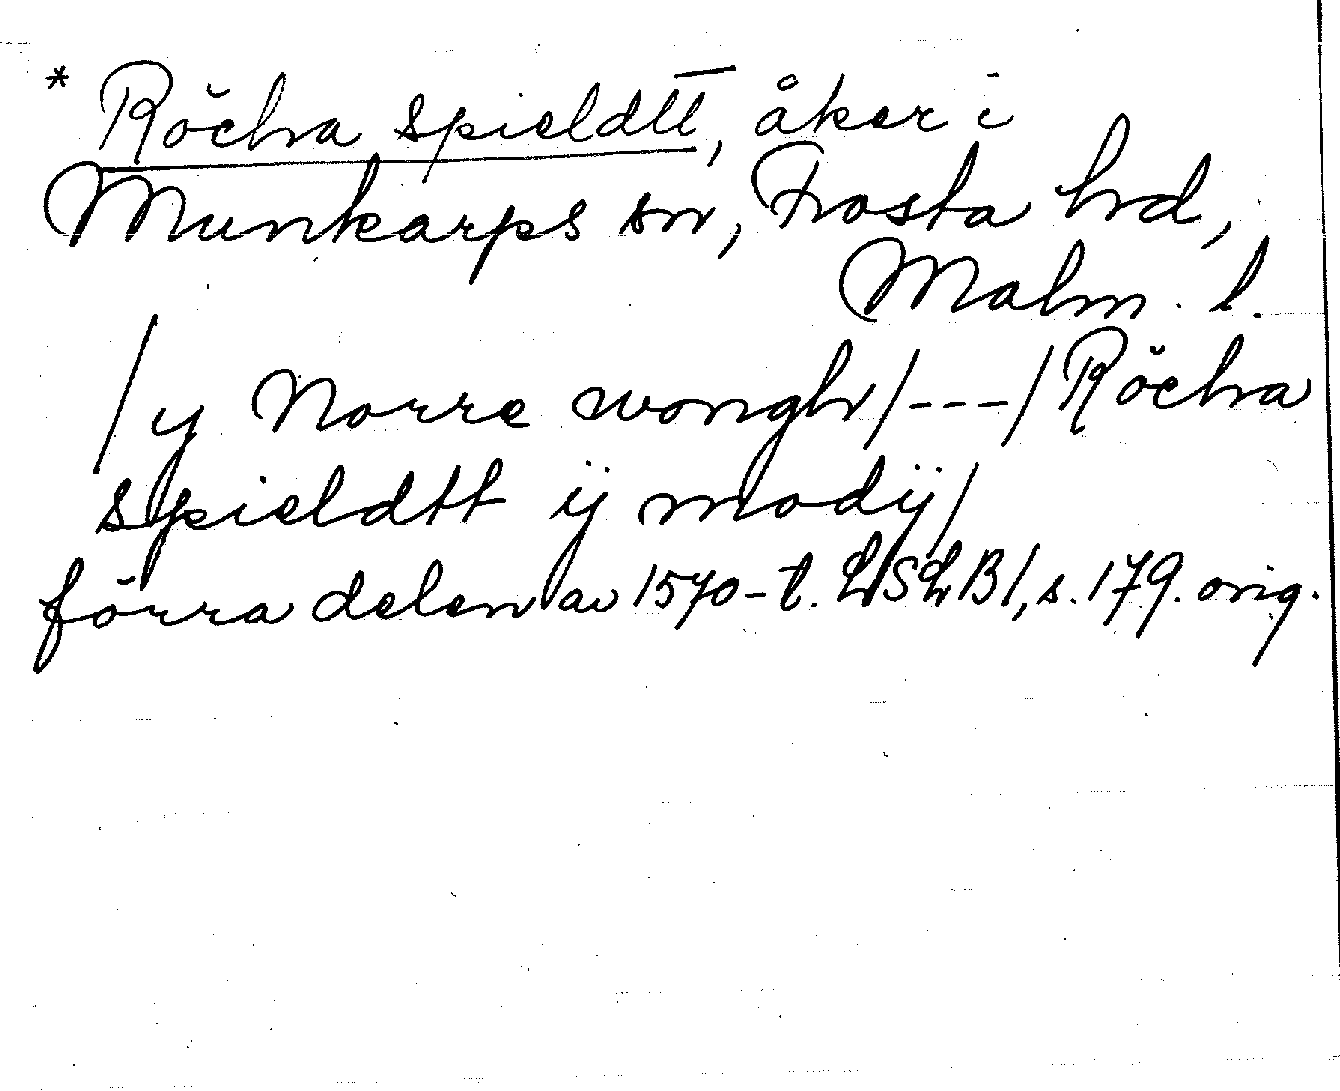 * Röchra spieldtt, åker i
Munkarps sn, Frosta hd,
Malm. l.
/y Norre wongh/---/Röchra
spieldtt ÿ modÿ/
förra delen av 1570-t. LSLB1, s. 179. orig.